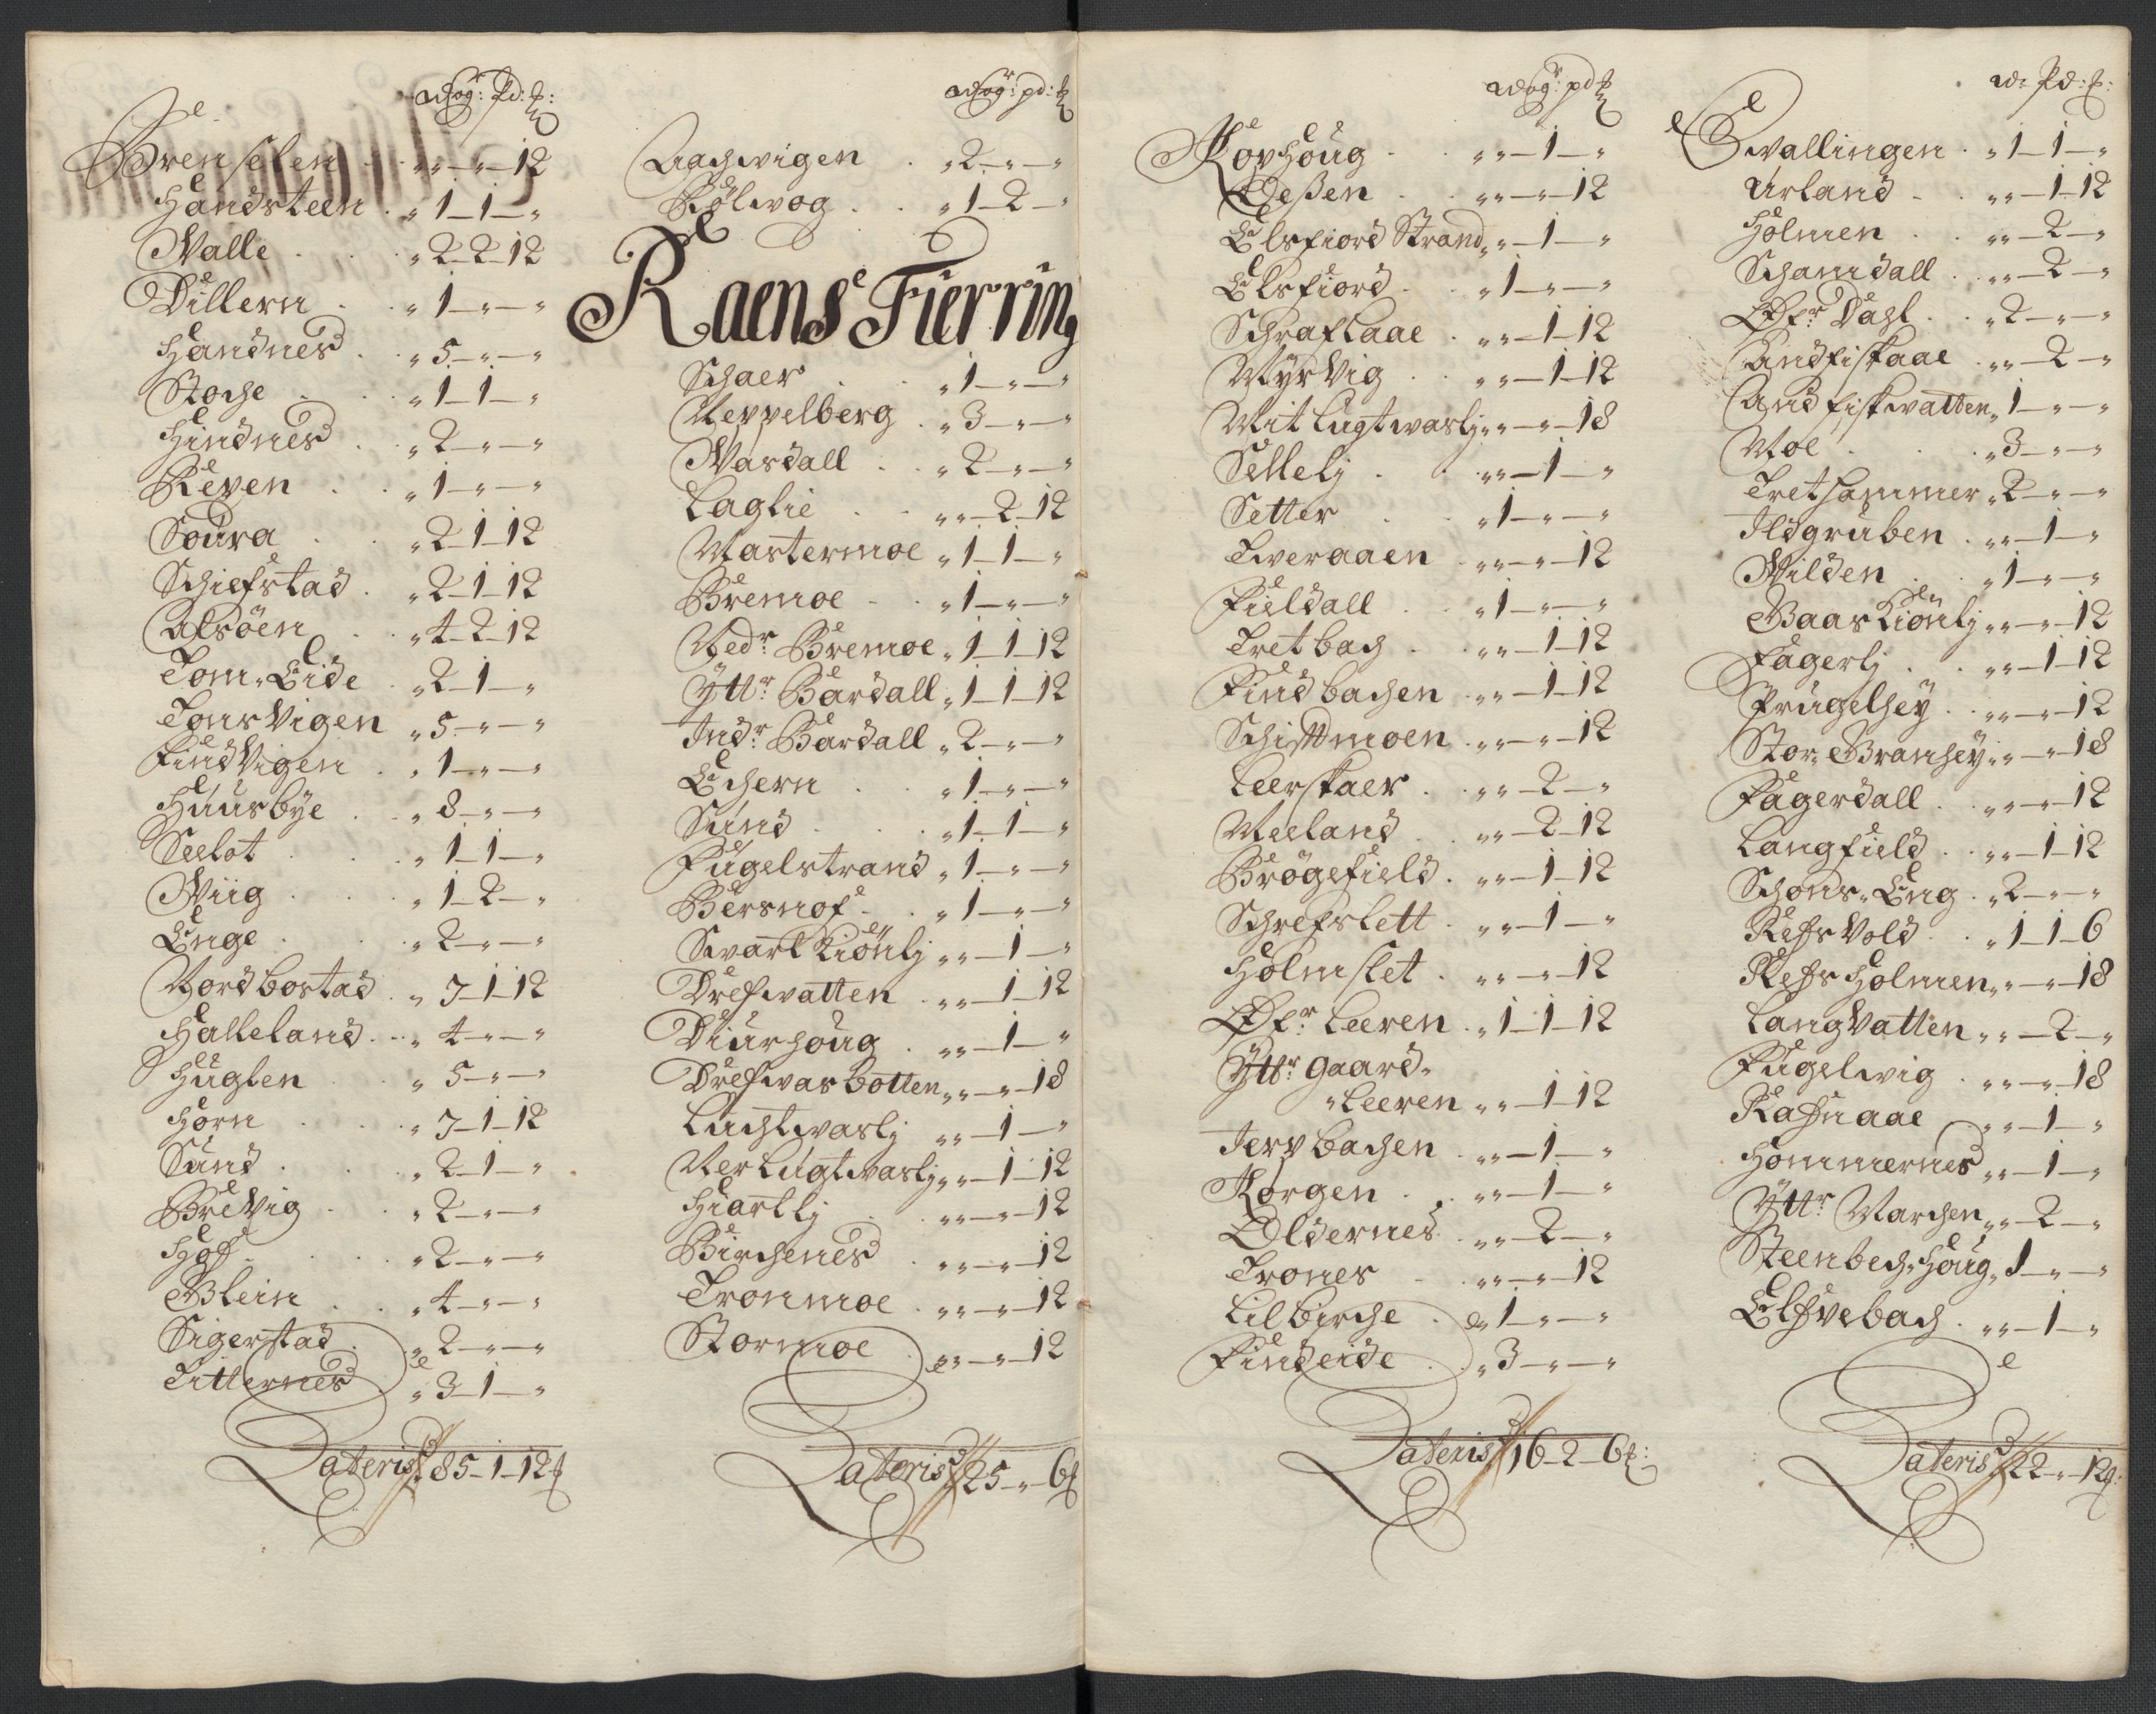 Wog: Pd: ℔:
Brenselen . „ „ — „ — 12
Handsteen . „ 1 — 1 — „
Walle . „ 2 — 2 — 12
Dillern . „ 1 — „ — „
Handnes . „ 5 — „ — „
Stoche . „ 1 — 1 — „
Hindnes . „ 2 — „ — „
Reven . „ 1 — „ — „
Soura . „ 2 — 1 — 12
Schiefstad . „ 2 — 1 — 12
Alsöen . „ 4 — 2 — 12
Tom „ Eide . „ 2 — 1 — „
Tons Vigen „ 5 — „ — „
Find Vigen . „ 1 — „ — „
Huusbÿe . „ 8 — „ — „
Seelot . „ 1 — 1 — „
Wiig . „ 1 — 2 — „
Enge . „ 2 — „ — „
Nordbostad . „ 7 — 1 — 12
Halleland . „ 4 — „ — „
Huglen „ 5 — „ — „
Horn . „ 7 — 1 — 12
Sund . „ 2 — 1 — „
Brevig . „ 2 — „ — „
Hof . „ 2 — „ — „
Blein . „ 4 — „ — „
Sigerstad . „ 2 — „ — „
Titternes „ 3 — 1 — „
Lateris 85 — 1 — 12 ℔
Wogr: pd: ℔
Aachwigen . „ 2 — „ — „
Kölwog . „ 1 — 2 — „
Raens Fierring
Schaer . „ 1 — „ — „
Neppelberg . „ 3 — „ — „
Wasdall . „ 2 — „ — „
Laglie . „ „ — 2 — 12
Mastermoe „ 1 — 1 — „
Bremoe . „ 1 — „ — „
Nedr Bremoe „ 1 — 1 — 12
Ÿttr Bardall „ 1 — 1 — 12
Indr Bardall „ 2 — „ — „
Echern . „ 1 — „ — „
Sund . „ 1 — 1 — „
Fugelstrand „ 1 — „ — „
Bersnof . „ 1 — „ — „
Svart Kiönlj „ „ — 1 — „
Drefwatten . „ „ — 1 — 12
Diurhoug . „ „ — 1 — „
Drefwasbotten „ „ — „ — 18
Luchtwaslj „ „ — 1 — „
Ner Lugtwaslj „ „ — 1 — 12
Hiartlj „ „ — „ — 12
Birchenes . „ „ — „ — 12
Tronmoe . „ „ — „ — 12
Stormoe . „ „ — „ — 12
Lateris 25 — „ — 6 ℔
Wogr: pd ℔
Kovhoug . „ „ — 1 — „
Deßen . „ „ — „ — 12
Elsfiord Strand „ „ — 1 — „
Elsfiord . „ 1 — „ — „
Schraflaae . „ „ — 1 — 12
Mÿrvig . „ „ — 1 — 12
Mit Lugtwaslj „ „ — „ — 18
Sellelj . „ „ — 1 — „
Setter . „ 1 — „ — „
Tweraaen „ „ — „ — 12
Fieldall . „ 1 — „ — „
Tretbach . „ „ — 1 — 12
Findbachen „ „ — 1 — 12
Schittmoen . „ „ — „ — 12
Leerskaer . „ „ — 2 — „
Meeland . „ „ — 2 — 12
Brögefield . „ „ — 1 — 12
Schrefslett . „ „ — 1 — „
Holmslet . „ „ — „ — 12
Øfr Leeren . „ 1 — 1 — 12
Ÿttr Gaard „
„ Leeren „ „ — 1 — 12
Jervbachen . „ „ — 1 — „
Korgen . „ „ — 1 — „
Oldernes . „ „ — 2 — „
Trones . „ „ — „ — 12
Lilbirche . „ 1 — „ — „
Findeide . „ 3 — „ — „
Lateris 16 — 2 — 6 ℔:
W: Pd: ℔:
Svallingen . „ 1 — 1 — „
Urland . „ „ — 1 — 12
Holmen . „ „ — 2 — „
Schamdall . „ „ — 2 — „
Øfr Dahl . „ 2 — „ — „
Andfiskaae „ „ — 2 — „
Andfiskwatten „ 1 — „ — „
Moe . „ 3 — „ — „
Trethammer „ 2 — „ — „
Ildgruben . „ „ — 1 — „
Wilden . „ 1 — „ — „
Baas Kiönlj „ „ — „ — 12
Fagerlj . „ „ — 1 — 12
Frugelheÿ . „ „ — „ — 12
Stor „ Branheÿ „ „ — „ — 18
Fagerdall . „ „ — „ — 12
Langfield . „ „ — 1 — 12
Schons „ Eng . „ 2 — „ — „
Refs Vold . „ 1 — 1 — 6
Refs Holmen „ „ — „ — 18
Langvatten „ „ — 2 — „
Fugelwig . „ „ — „ — 18
Rafnaae „ „ — 1 — „
Hommernes „ „ — 1 — „
Ÿttr Marchen „ „ — 2 — „
Steenbech „ Houg „ 1 — „ — „
Elfvebach . „ „ — 1 — „
Lateris 22 — „ — 12 ℔: